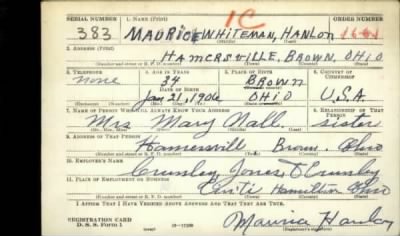 1C
SERIAL NUMBER 1. NAME (Print) ORDER NUMBER
383 MAURICE WHITEMAN, HANLON
2. ADDRESS (Print)
HAMERSVILLE, BROWN, OHIO
3. TELEPHONE 4. AGE IN YEARS 5. PLACE OF BIRTH 6. COUNTRY OF CITIZENSHIP
None 34 BROWN
DATE OF BIRTH
Jan, 21, 1906 OHIO U.S.A
7. NAME OF PERSON WHO WILL ALWAYS KNOW YOUR ADDRESS 8. RELATIONSHIP OF THAT PERSON
Mrs Mary Nall. sister
9. ADDRESS OF THAT PERSON
Hamersvill Brown. Ohio
10. EMPLOYER'S NAME
Crumley, Jones, & Crumley
11. PLACE OF EMPLOYMENT OR BUSINESS
Hamilton Ohio
I AFFIRM THAT I HAVE VERIFIED ABOVE ANSWERS AND THAT THEY ARE TRUE.
REGISTRATION CARD
D. S. S. Form 1
Maurice Hanlon